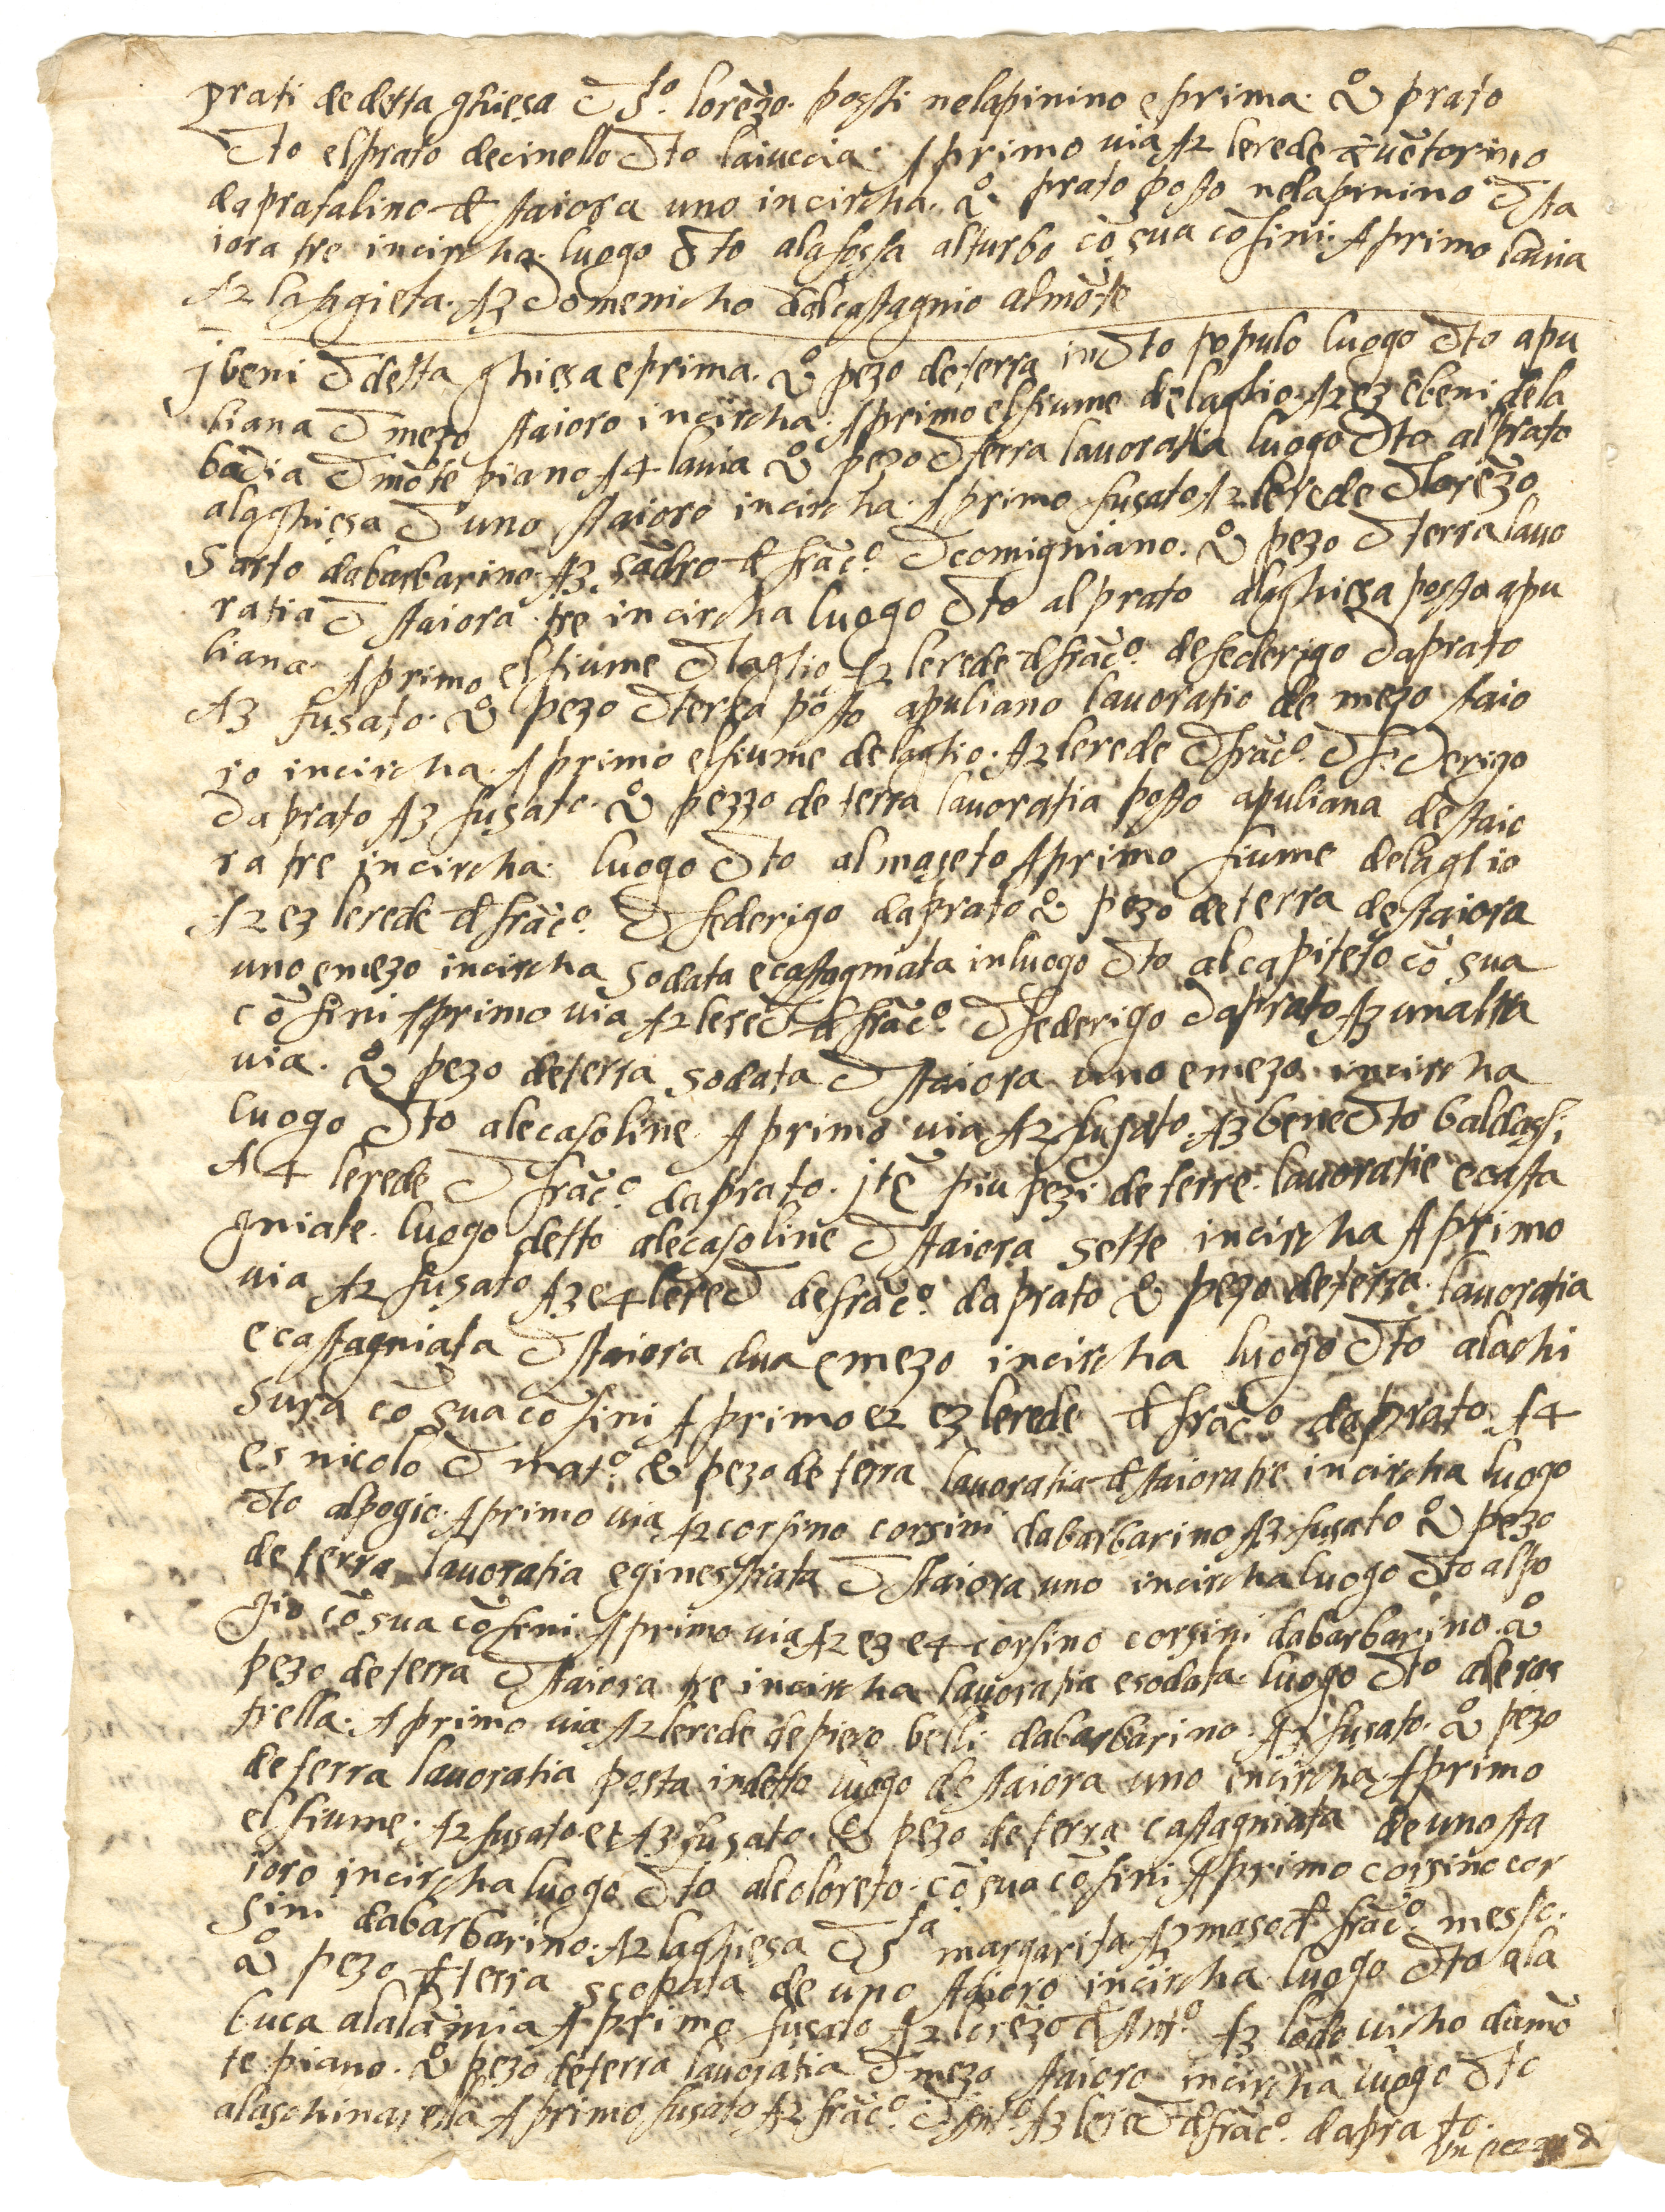 prati de detta ghiesa d sto. lorēzo. posti nelapinino e prima. Vo prato
dto elprato decinello dto laiuccia. A primo via A2 lerede d uētorino
dapratalino d staiora uno incircha. Vo prato posto nelapinino d sta
iora tre incircha. luogo dto ala fossa alturbo cō sua cōfini. A primo lavia
A2 la sagieta. A3 domenicho dalcastagnio almōte
j beni d detta ghiesa e prima. Vo pezo de terra in dto populo luogo dto apu
liana d mezo staioro incircha. A primo elfiume delaglio. A2 e3 ebeni dela
badia d mōte piano A4 lauia Vo pezo d terra lauoratia luogo dto alprato
alaghiesa d uno staioro incircha. A primo fusato A2 lerede d lorēzo
sarto dabarbarino. A3 sādro d frāco. d comigniano. Vo pezo d terra lauo
ratia d staiora tre incircha luogo dto alprato alaghiesa posto apu
liana. A primo elfiume d laglio A2 lerede d frāco. de federigo daprato
A3 fusato. Vo pezo d terra posto apuliano lauoratio de mezo staio
ro incircha. A primo elfiume delaglio. A2 lerede d frāco. d federigo
daprato A3 fusato. Vo pezzo de terra lauoratia posto apuliana de staio
ra tre incircha. luogo dto almaseto A primo fiume delaglio
A2 e3 lerede d frāco. d federigo daprato Vo pezo de terra de staiora
uno emezo incircha sodata e castagniata inluogo dto alcapiteto cō sua
cō fini A primo uia A2 lered d frāco. d federigo daprato A3 unaltra
uia. Vo pezo deterra sodata d staiora uno emezo incircha
luogo dto alecasoline. A primo uia A2 fusato. A3 benedto baldassi
A4 lerede d frāco. daprato. jtē piu pezi de terre lauoratie e casta
gniate. luogo detto alecasoline d staiora sette incircha A primo
uia A2 fusato A3 e4 lered defrāco. daprato Vo pezo deterra lauoratia
e castagniata d staiora dua emezo incircha luogo dto alachi
sura cō sua cō fini A primo e2 e3 lerede d frāco. daprato A4
e5 nicolo d mato. Vo pezo de terra lauoratia d staiora tre incircha luogo
dto alpogio. A primo uia A2 corsino corsini dabarbarino A3 fusato Vo pezo
de terra lauoratia eginesstrata d staiora uno incircha luogo dto alpo
gio cō sua cō fini. A primo uia A2 e3 e4 corsino corsini dabarbarino. Vo
pezo de terra d staiora tre incircha lauoratia esodata. luogo dto
trella. A primo uia A2 lerede depiero belli dabarbarino. A3 fusato. Vo pezo
de terra lauoratia posta indetto luogo de staiora uno incircha A primo
elfiume. A2 fusato et A3 fusato. Vo pezo de terra castagniata de uno sta
ioro incircha luogo dto alecloreto. cō sua cō fini A primo corsino cor
sini dabarbarino. A2 laghiesa d sta margarita. A3 maso d frāco. messe.
Vo pezo d terra scopata de uno staioro incircha luogo dto ala
buca alalāmia A primo fusato A2 lorēzo d Anto. A3 lodouicho damō
te piano. Vo pezo deterra lauoratia d mezo staioro incircha luogo dto
alaschinarella A primo fusato A2 frāco. d Anto. A3 lered d frāco. daprato.
un pezzo d